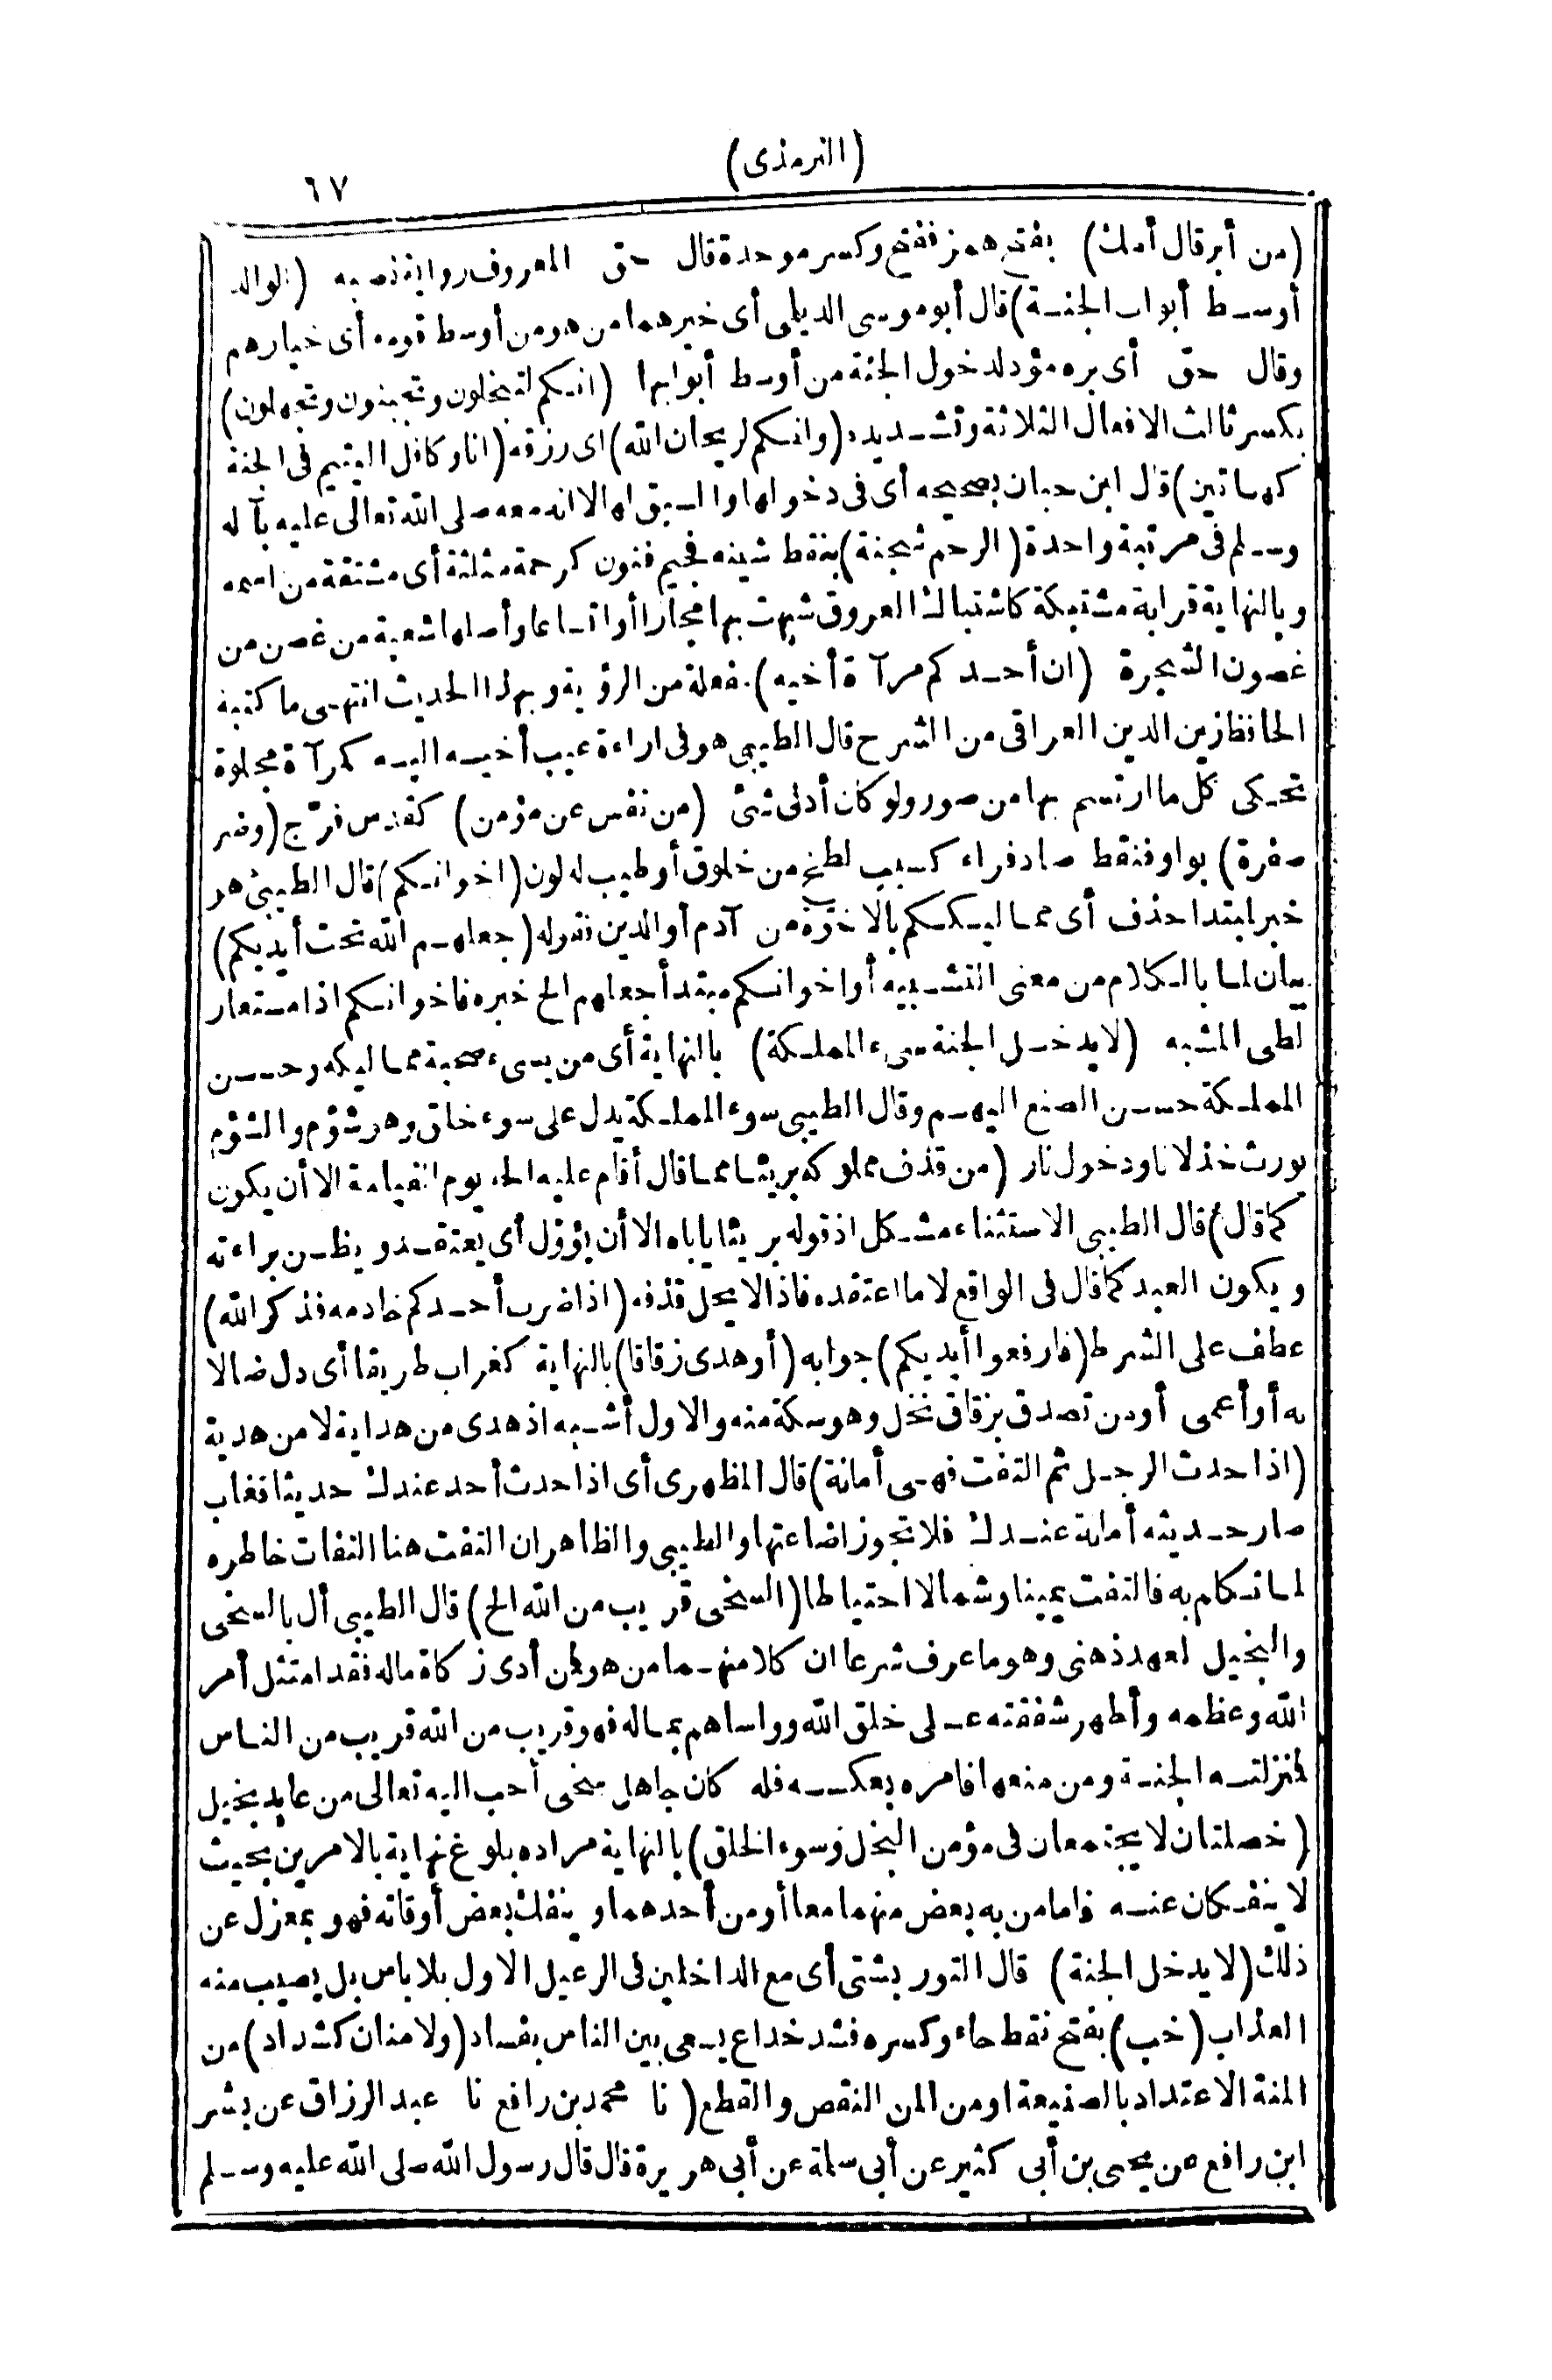 (الترمذى)
٦٧
(من أبر قال أمك) بفتح همز ففتح وكسر موحدة قال حق المعروف رواية نصبه (الوالد
أوسط أبواب الجنة) قال أبو موسى الديلى أى خيرهما من هو من أوسط قومه أى خيارهم
وقال حق أى بره مؤد لدخول الجنة من أوسط أبوابها (انكم لتبخلون وتجبنون وتجهلون)
بكسر ثالث الافعال الثلاثة وتشديده (وانكم لريحان الله) اى رزقه (انا وكافل اليتيم فى الجنة
كهاتين) قال ابن حبان بصحيحه أى فى دخولها والسبق لها لا انه معه صلى الله تعالى عليه بآله
وسلم فى مرتبة واحدة (الرحم شجنة) بنقط شينه فجيم فنون كرحمة مثلثة أى مشتقة من اسمه
وبالنهاية قرابة مشتبكة كاشتباك العروق شبهت بها مجازا أو اتساعا وأصلها شعبة من غصن من
غصون الشجرة (ان أحدكم مرآة أخيه) مفعلة من الرؤية وبهذا الحديث انتهى ما كتبه
الحافظ زين الدين العراقى من الشرح قال الطيبى هو فى اراءة عيب أخيه اليه كمرآة مجلوة
تحكى كل ما ارتسم بها من صور ولو كان أدنى شئ (من نفس عن مؤمن) كقدس فرّج (وضر
صفرة) بواو فنقط صاد فراء كسبب لطخ من خلوق أو طيب له لون (اخوانكم) قال الطيبى هو
خبر ابتدا حذف أى مماليككم بالاخوّة من آدم أو الدين نقوله (جعلهم الله تحت أيديكم)
بيان لما بالكلام من معنى التشبيه أو اخوانكم مبتدأ جعلهم الخ خبره فاخوانكم اذا مستعار
لطى المشبه (لا يدخل الجنة سىء الملكة) بالنهاية أى من يسىء صحبة مماليكه وحسن
الملكة حسن الصنع اليهم وقال الطيبى سوء الملكة يدل على سوء خلق وهو شؤم والشؤم
يورث خذلانا ودخول نار (من قذف مملوكه بريئا مما قال أقام عليه الحد يوم القيامة الا أن يكون
كما قال) قال الطيبى الاستثناء مشكل اذ قوله بريئا يأباه الا أن يؤول أى يعتقد ويظن براءته
ويكون العبد كما قال فى الواقع لا ما اعتقده فاذا لا يحل قذفه (اذا ضرب أحدكم خادمه فذكر الله)
عطف على الشرط (فارفعوا أيديكم) جوابه (أو هدى زقاقا) بالنهاية كغراب طريقا أى دل ضالا
به أو أعمى أو من تصدق بزقاق نخل وهو سكة منه والاول أشبه اذ هدى من هداية لا من هدية
(اذا حدث الرجل ثم التفت فهى أمانة) قال المظهرى أى اذا حدث أحد عندك حديثا فغاب
صار حديثه أمانة عندك فلا تجوز اضاعتها والطيبى والظاهر ان التفت هنا التفات خاطره
لما تكلم به فالتفت يمينا وشمالا احتياطا (السخى قريب من الله الخ) قال الطيبى أل بالسخى
والبخيل لعهد ذهنى وهو ما عرف شرعا ان كلا منهما من هو فمن أدى زكاة ماله فقد امتثل أمر
الله وعظمه وأظهر شفقته على خلق الله وواساهم بماله فهو قريب من الله قريب من الناس
فمنزلته الجنة ومن منعها فامره بعكسه فله كان جاهل سخى أحب اليه تعالى من عابد بخيل
(خصلتان لا يجتمعان فى مؤمن البخل وسوء الخلق) بالنهاية مراده بلوغ نهاية بالامرين بحيث
لا ينفكان عنه فاما من به بعض منهما معا أو من أحدهما وينفك بعض أوقاته فهو بمعزل عن
ذلك (لا يدخل الجنة) قال التوربشتى أى مع الداخلين فى الرعيل الاول بلا باس بل يصيب منه
العذاب (خب) بفتح نقط خاء وكسره فشد خداع يسعى بين الناس بفساد (ولا منان كشداد) من
المنة الاعتداد بالصنيعة او من المن النقص والقطع (نا محمد بن رافع نا عبد الرزاق عن بشر
ابن رافع عن يحيى بن أبى كثير عن أبى سلمة عن أبى هريرة قال قال رسول الله صلى الله عليه وسلم